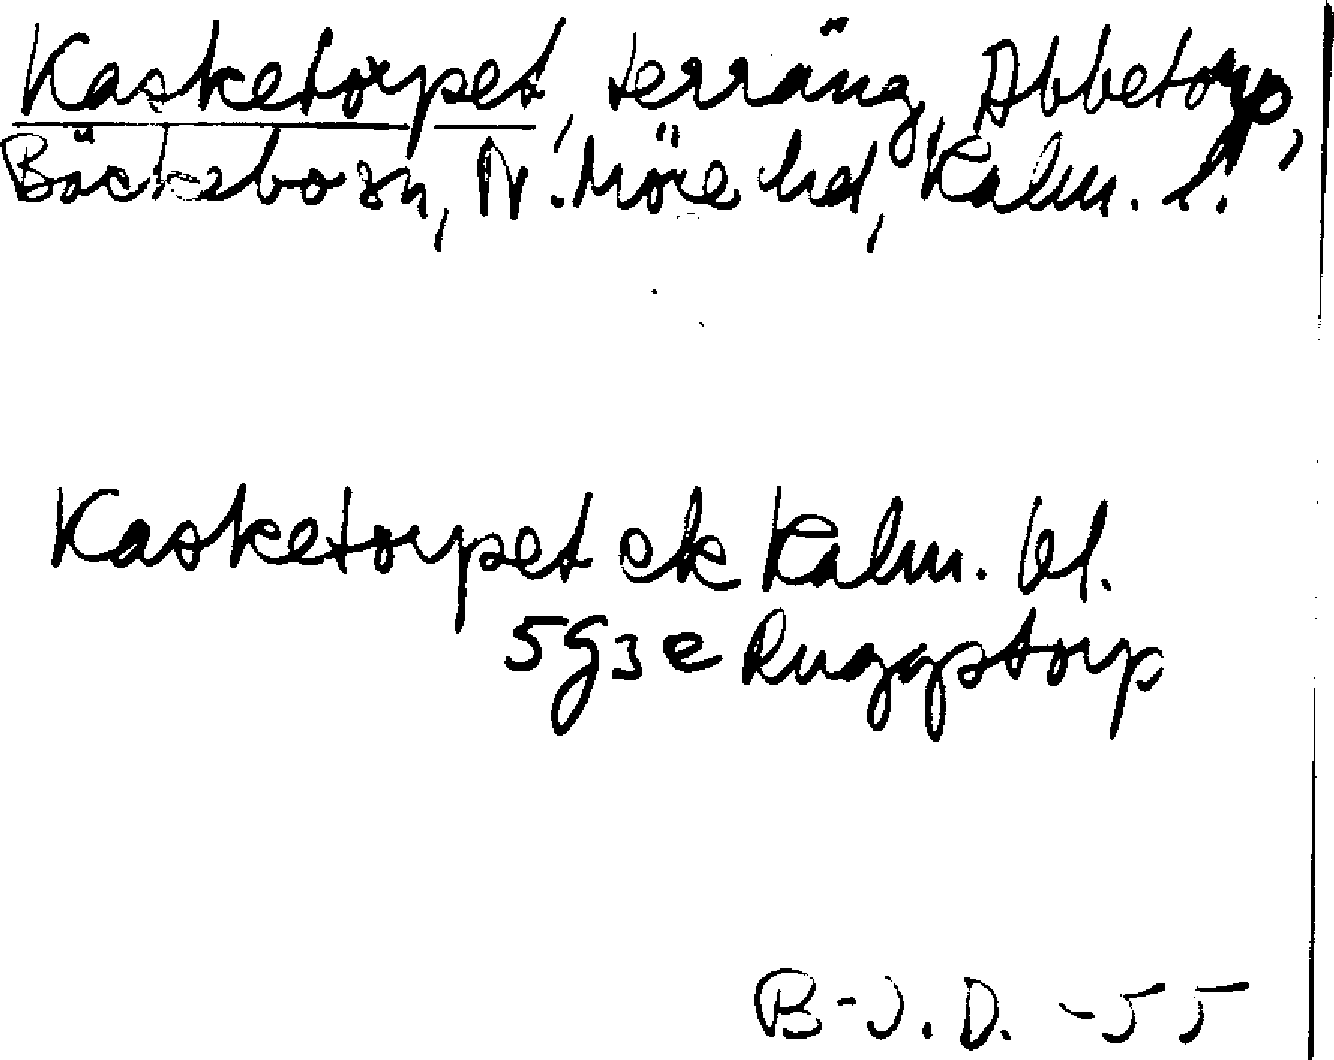 Kasketorpet, terräng, Abbetorp,
Bäckeborn, N. Möre hd, Kalm. l.
Kasketorpet ek Kalm. bl.
5g3e Ruggstorp
B-J. D. -55